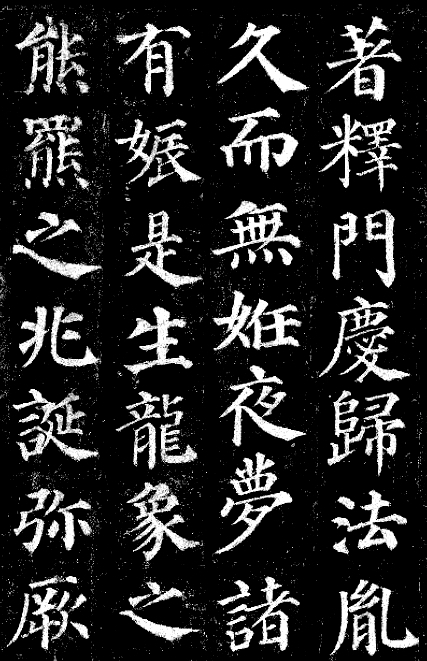 著釋門慶歸法胤
久而無姙夜夢諸
有娠是生龍象之
熊羆之兆誕弥厥